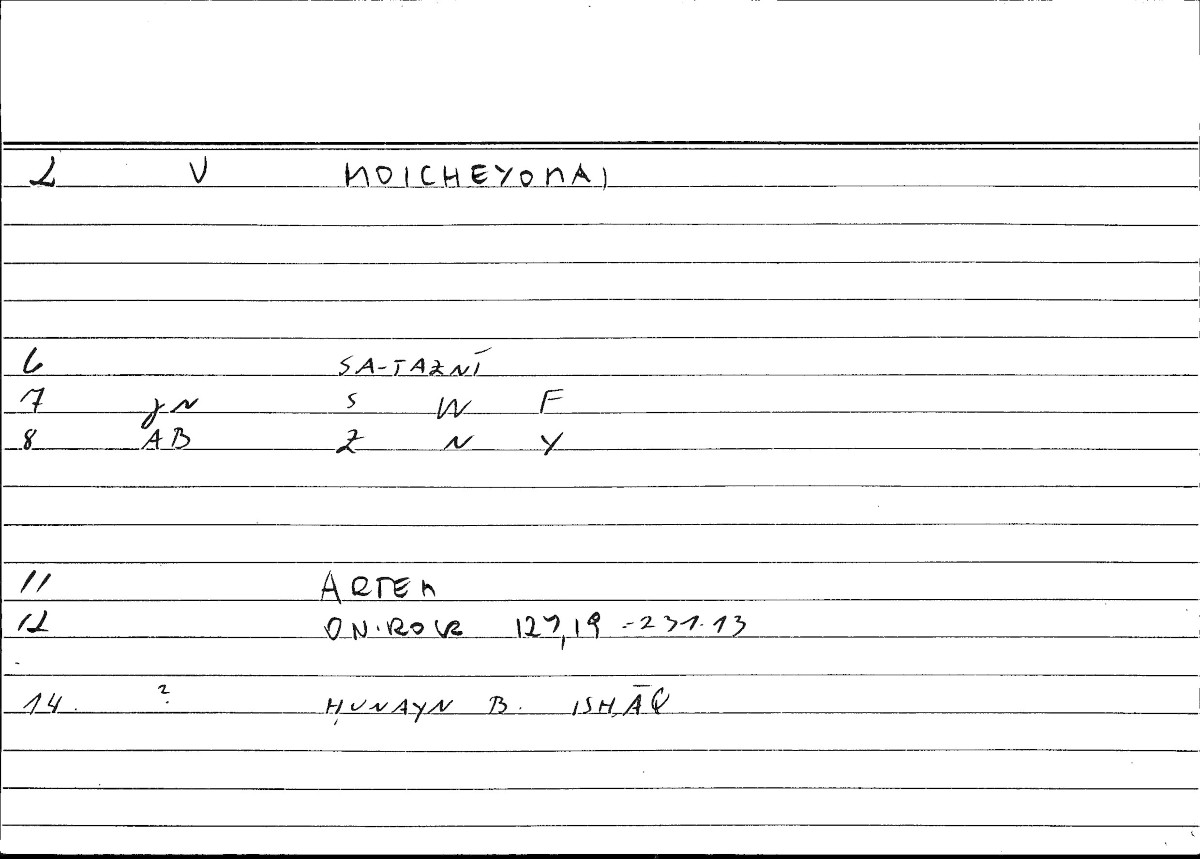 2 V MOICHEYOMAI
6 SA-TAZNĪ
7 JN S W F
8 AB Z N Y
11 ARTEM
12 ON.ROCR 127,19 -231.13
14. ? ḤUNAYN B. ISḤĀQ